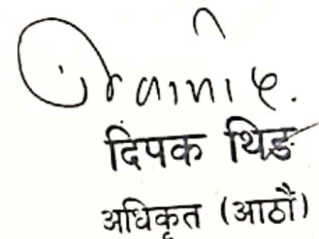 दिपक थिङ
अधिकृत (आठौं)